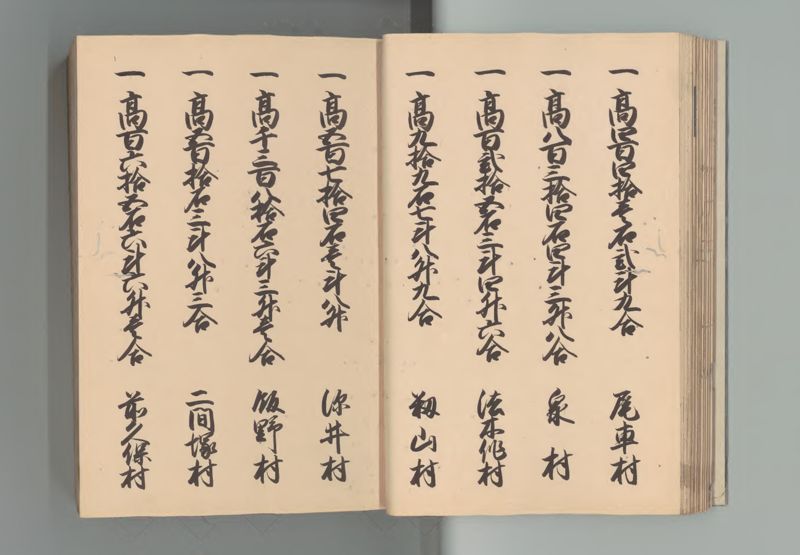 一 高四百四拾壱石弐斗九合 尾車村
一 高八百三拾四石四斗三升八合 泉村
一 高百弐拾五石三斗四升六合 法木作村
一 高九拾九石七斗八升九合 籾山村
一 高五百七拾四石壱斗八升 深井村
一 高千三百八拾石六斗三升壱合 飯野村
一 高五百拾石三斗八升三合 二間塚村
一 高百六拾五石六斗六升壱合 前久保村